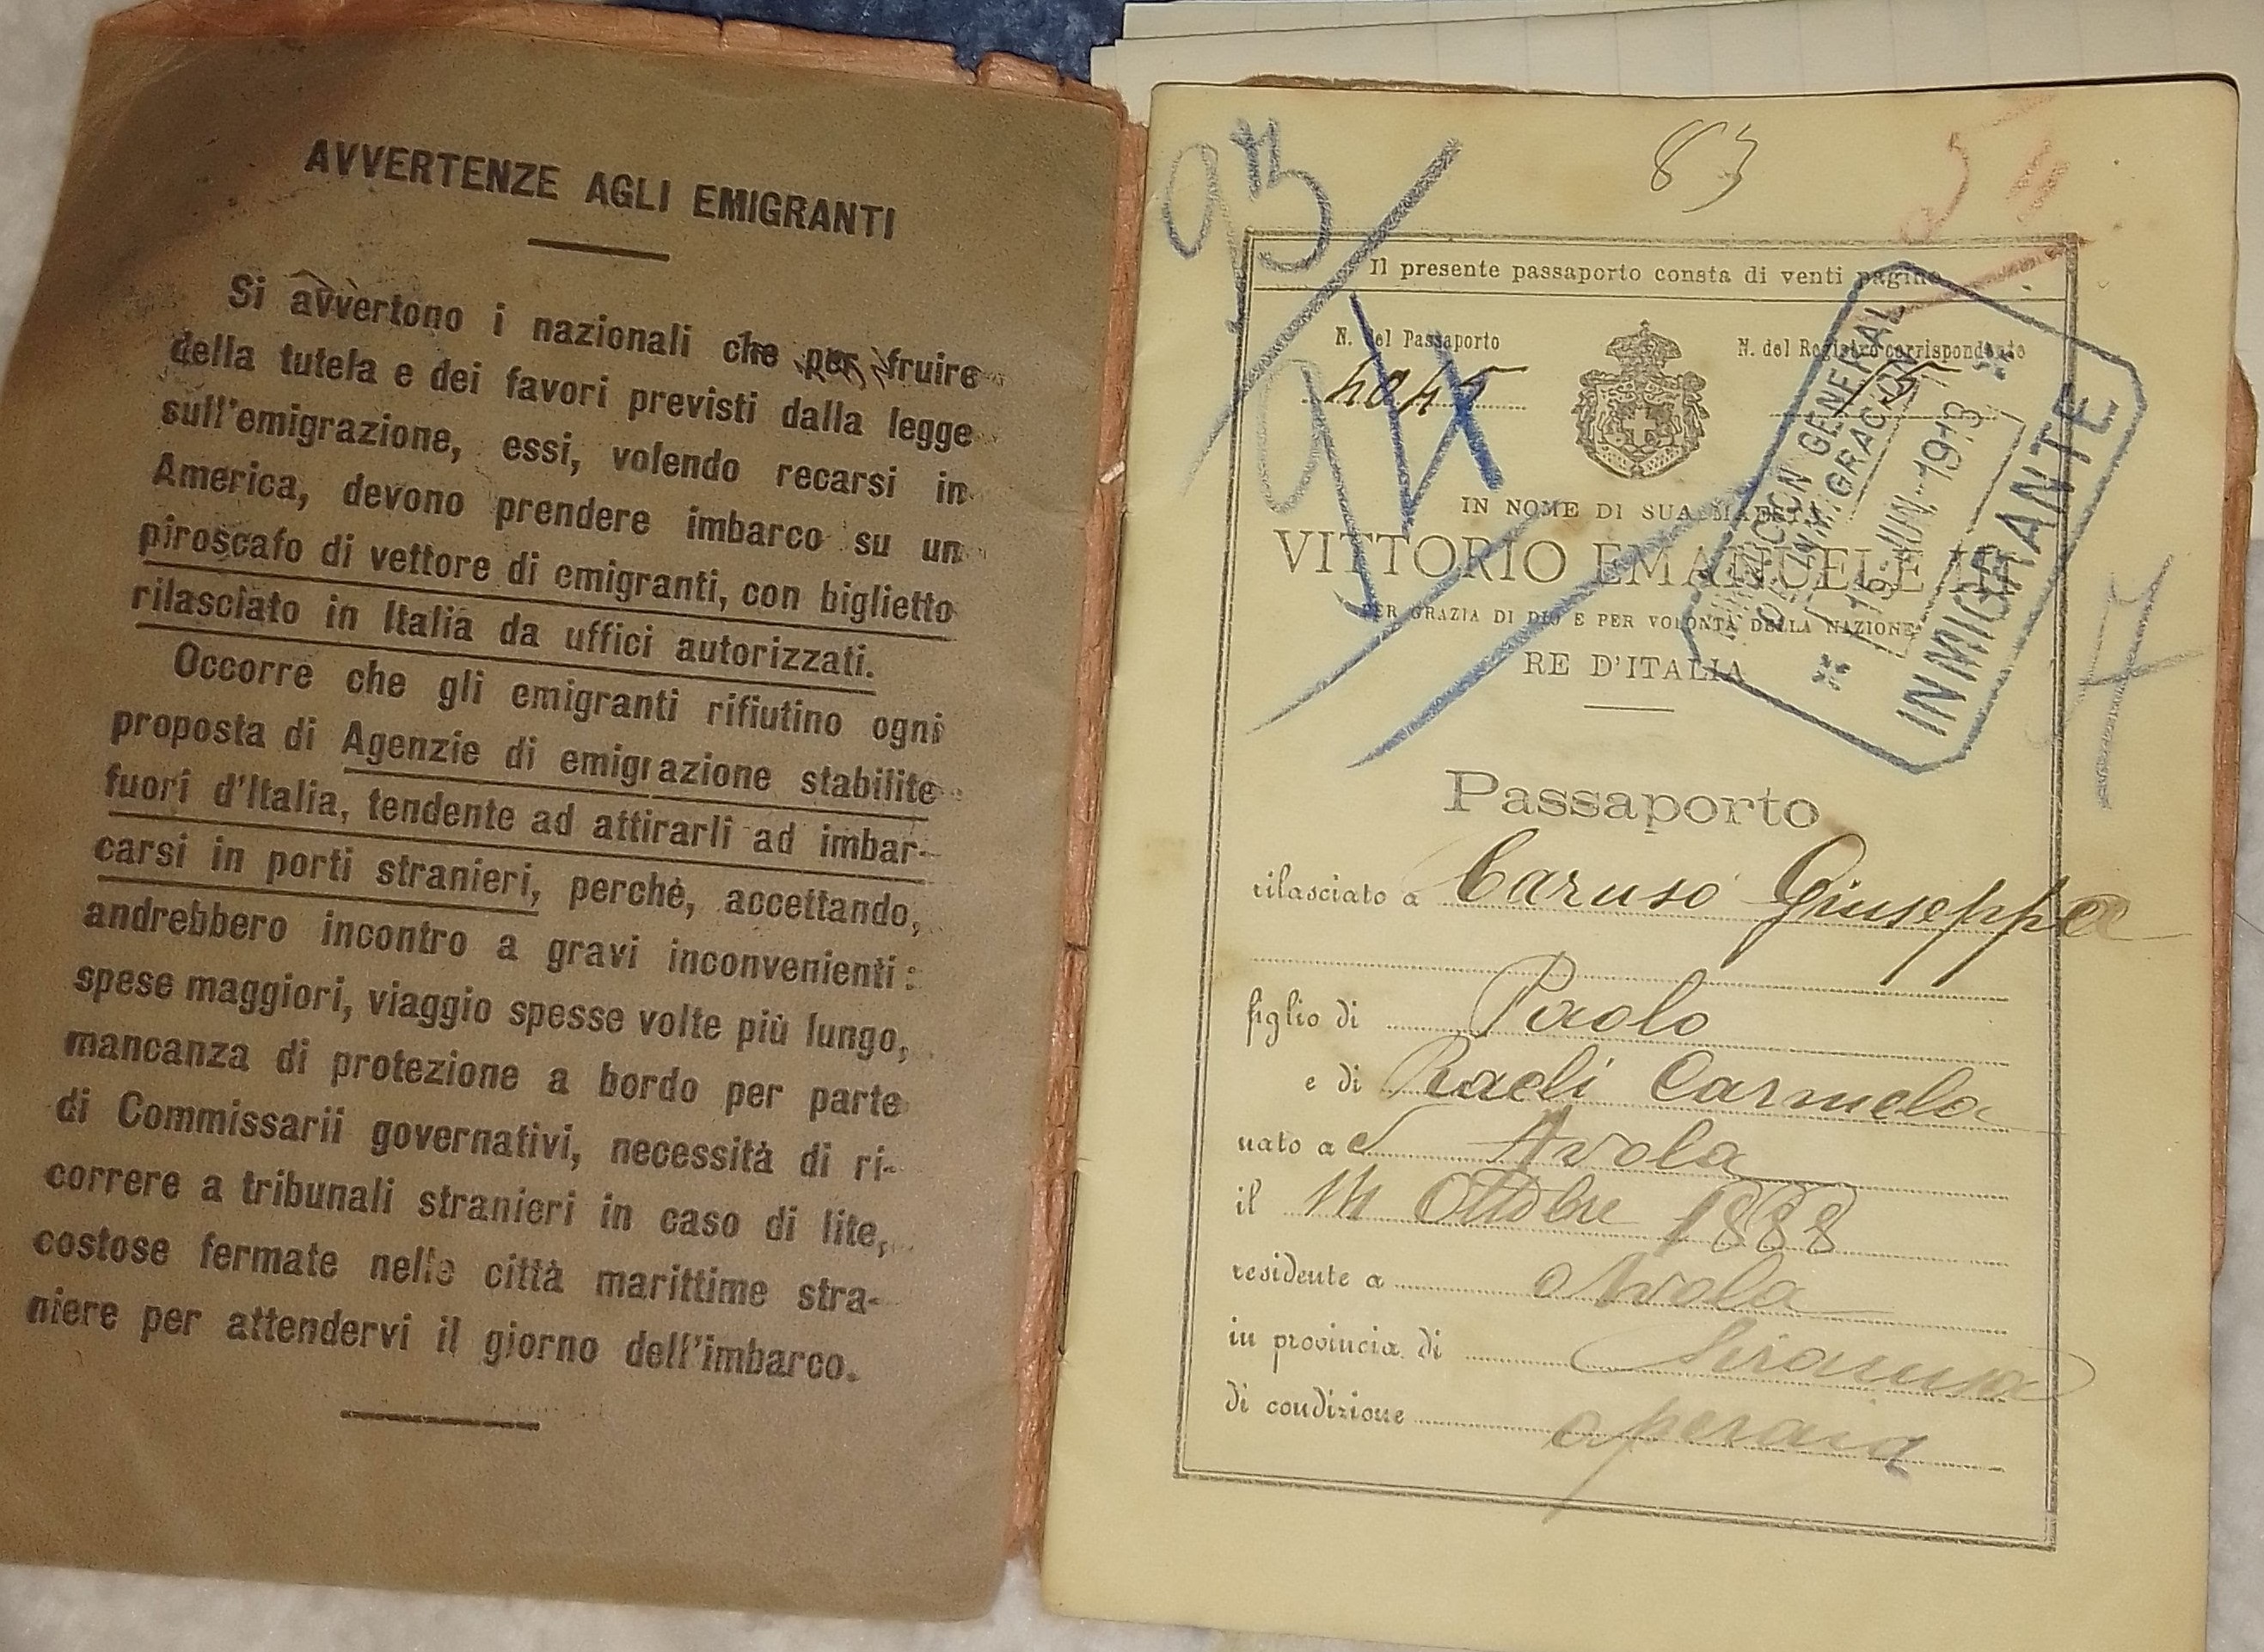 AVVERTENZE AGLI EMIGRANTI
Si avvertono i nazionali che per fruire
della tutela e dei favori previsti dalla legge
sull'emigrazione, essi, volendo recarsi in
America, devono prendere imbarco su un
piroscafo di vettore di emigranti, con biglietto
rilasciato in Italia da uffici autorizzati.
Occorre che gli emigranti rifiutino ogni
proposta di Agenzie di emigrazione stabilite
fuori d'Italia, tendente ad attirarli ad imbar-
carsi in porti stranieri, perchè, accettando,
andrebbero incontro a gravi inconvenienti:
spese maggiori, viaggio spesse volte più lungo,
mancanza di protezione a bordo per parte
di Commissarii governativi, necessità di ri-
correre a tribunali stranieri in caso di lite,
costose fermate nelle città marittime stra-
niere per attendervi il giorno dell'imbarco.
93
83
Il presente passaporto consta di venti pagine
N. del Passaporto
N. del Registro corrispondente
15
GENERAL
INMIGRACION
19 JUN. 1913
INMIGRANTE
IN NOME DI SUA MAESTÀ
VITTORIO EMANUELE III
PER GRAZIA DI DIO E PER VOLONTÀ DELLA NAZIONE
RE D'ITALIA
Passaporto
rilasciato a Caruso Giuseppa
figlio di Paolo
e di Raeli Carmela
nato a Avola
il 14 Ottobre 1888
residente a Avola
in provincia di Siracusa
di condizione operaia